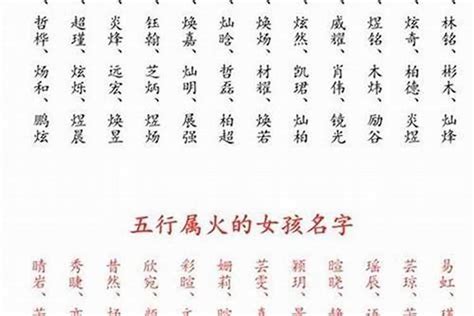 林铭、彬木、灿烽
炫奇、柏德、炎煜
煜铭、木炜、励谷
威耀、肖伟、镜光
炫然、凯珺、灿阳
焕炀、材耀、焕若
灿晗、哲磊、柏超
焕嘉、灿明、展强
钰翰、芝炳、煜炀
炎烽、远宏、焕昱
超瑾、炫烁、煜晨
哲桦、炀和、鹏炫
五行属火的女孩名字
易虹、
芸琼、
瑶辰、
暄晓、
颖玥、
芸雯、
姗莉、
彩暄、
欣宛、
昔然、
秀睫、
晴岩、